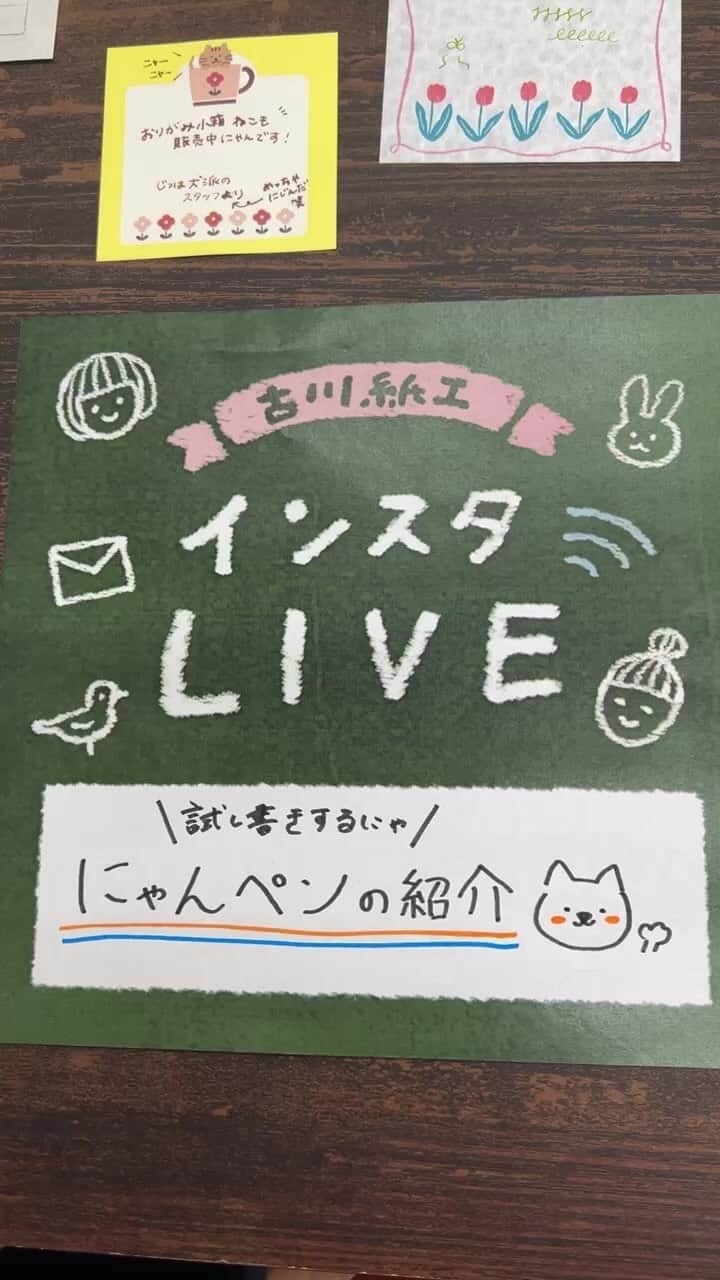 ニャー
ニャー
おりがみ小箱 ねこも
販売中にゃんです!
じつは犬派の
スタッフより
めっちゃ
にじんだ
笑
古川紙工
インスタ
LIVE
\試し書きするにゃ/
にゃんペンの紹介